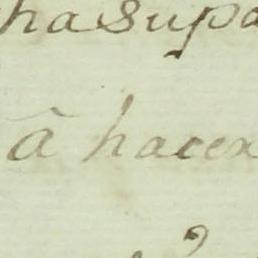 ha supa
â hacer